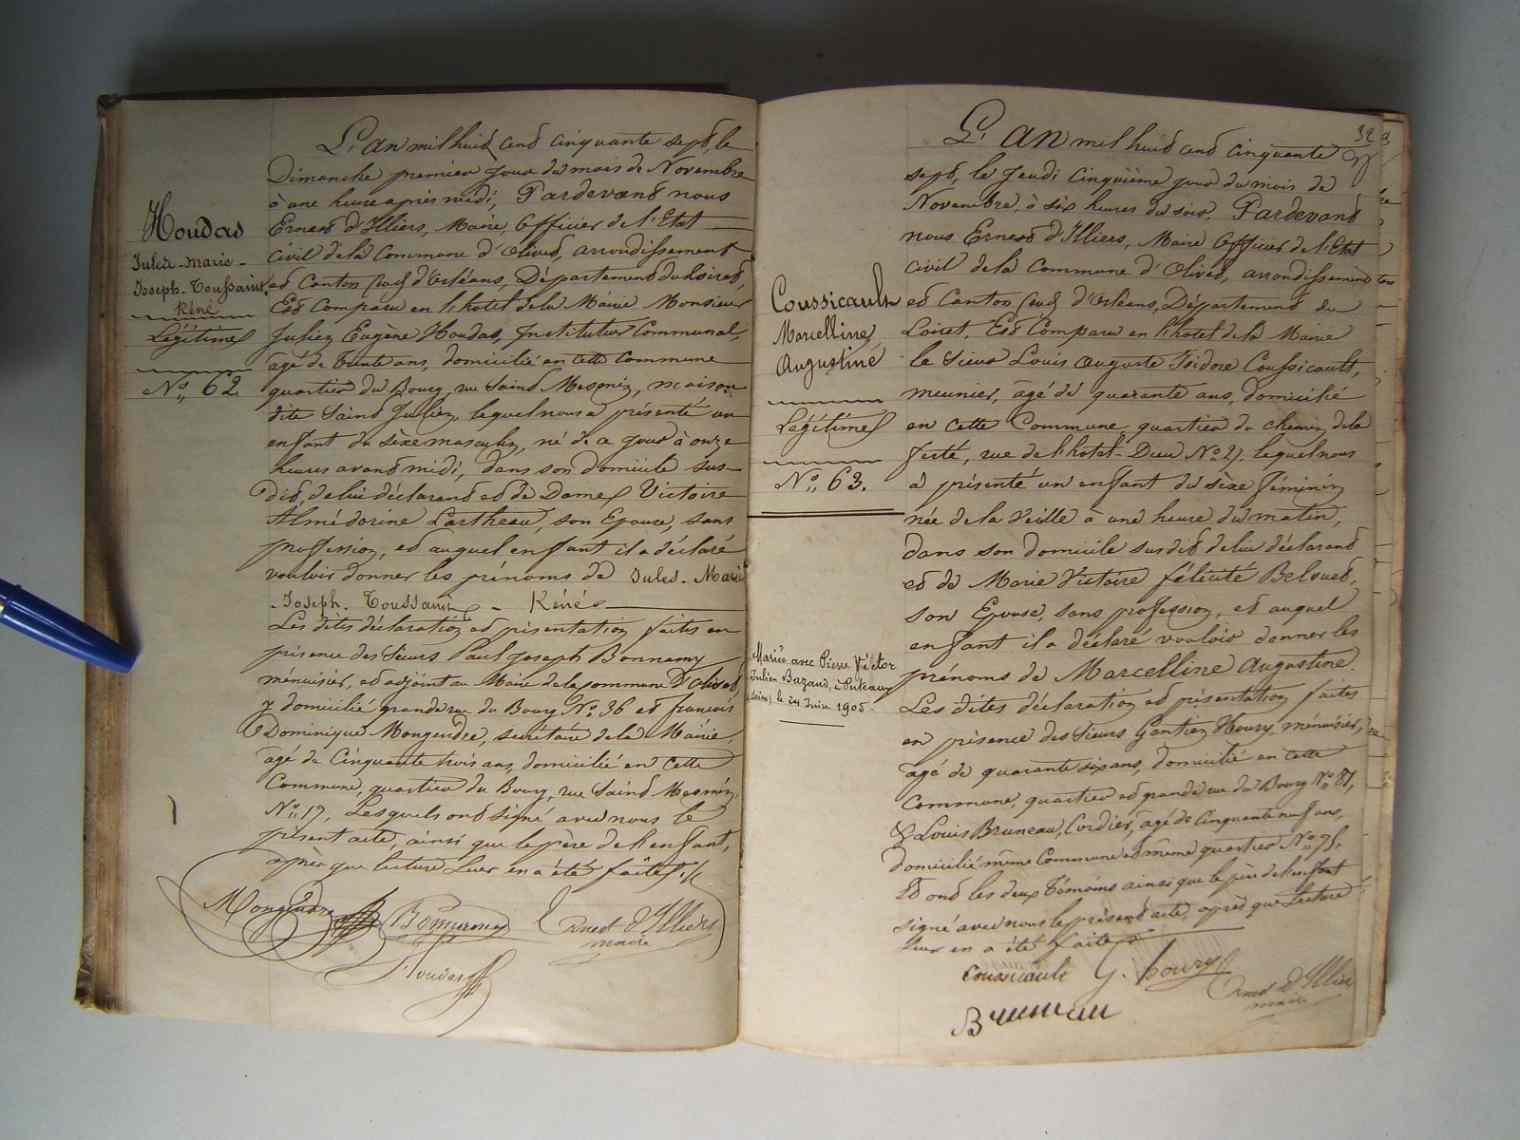 Houdas
Jules-marie-
Joseph-Toussaint
Réné
Légitime
N° 62
L'an mil huit cent cinquante sept, le
Dimanche premier jour du mois de Novembre
à une heure après midi, Pardevant nous
Ernest d'Illiers, Maire Officier de l'Etat
civil de la Commune d'Olivet, arrondissement
et Canton sud d'Orléans, Département du Loiret,
Est Comparu en l'hotel de la Mairie Monsieur
Julien Eugène Houdas, Instituteur Communal,
âgé de trente ans, domicilié en cette Commune
quartier du Bourg, rue Saint Mesmin, maison
dite Saint Julien, lequel nous a présenté un
enfant du sèxe masculin, né de ce jour à onze
heures avant midi, dans son domicile sus-
dit, de lui déclarant et de Dame Victoire
son Epouse, sans
profession, et auquel enfant il a déclaré
vouloir donner les prénoms de Jules-Marie
-Joseph-Toussaint-Réné
Les dites déclaration et présentation faites en
présence des Sieurs Paul Joseph Bonnemy
menuisier, et adjoint au Maire de la commune d'Olivet,
y domicilié grande rue du Bourg N° 36 et francois
Dominique Mongendre, secrétaire de la Mairie,
âgé de Cinquante trois ans, domicilié en cette
Commune, quartier du Bourg, rue Saint Mesmin
N° 17, Lesquels ont signé avec nous le
présent acte, ainsi que le père de l'enfant,
après que lecture leur en a été faite./.
Mongendre Bonnemy Ernest d'Illiers
maire
Houdas
32
Coussicault
Marcelline
Augustine
Légitime
N° 63.
Mariée avec Pierre Victor
Julien Bazand, à Puteaux
(Seine) le 24 Juin 1905.
L'AN mil huit cent cinquante
sept, le Jeudi Cinquième jour du mois de
Novembre, à six heures du soir, Pardevant
nous Ernest d'Illiers, Maire Officier de l'Etat
civil de la Commune d'Olivet, arrondissement
et Canton sud d'Orléans, Département du
Loiret, Est Comparu en l'hotel de la Mairie
le Sieur Louis Auguste Isidore Coussicault,
meunier, âgé de quarante ans, domicilié
en cette Commune, quartier du chemin de la
ferté, rue de l'hotel-Dieu N° 27, lequel nous
a présenté un enfant du sèxe féminin
née de la Veille à une heure du matin,
dans son domicile susdit de lui déclarant
et de Marie Victoire félicité
son Epouse, sans profession, et auquel
enfant il a déclaré vouloir donner les
prénoms de Marcelline Augustine.
Les dites déclaration et présentation faites
en présence des Sieurs Gantien Houry, menuisier,
âgé de quarante six ans, domicilié en cette
Commune, quartier et grande rue du Bourg N°
& Louis Bruneau, Cordier, âgé de Cinquante neuf ans,
domicilié même Commune et même quartier N°
Et ont les deux témoins ainsi que le père de l'enfant
signé avec nous le présent acte, après que Lecture
leur en a été faite
Coussicault G. houry Ernest d'Illiers
maire
Bruneau